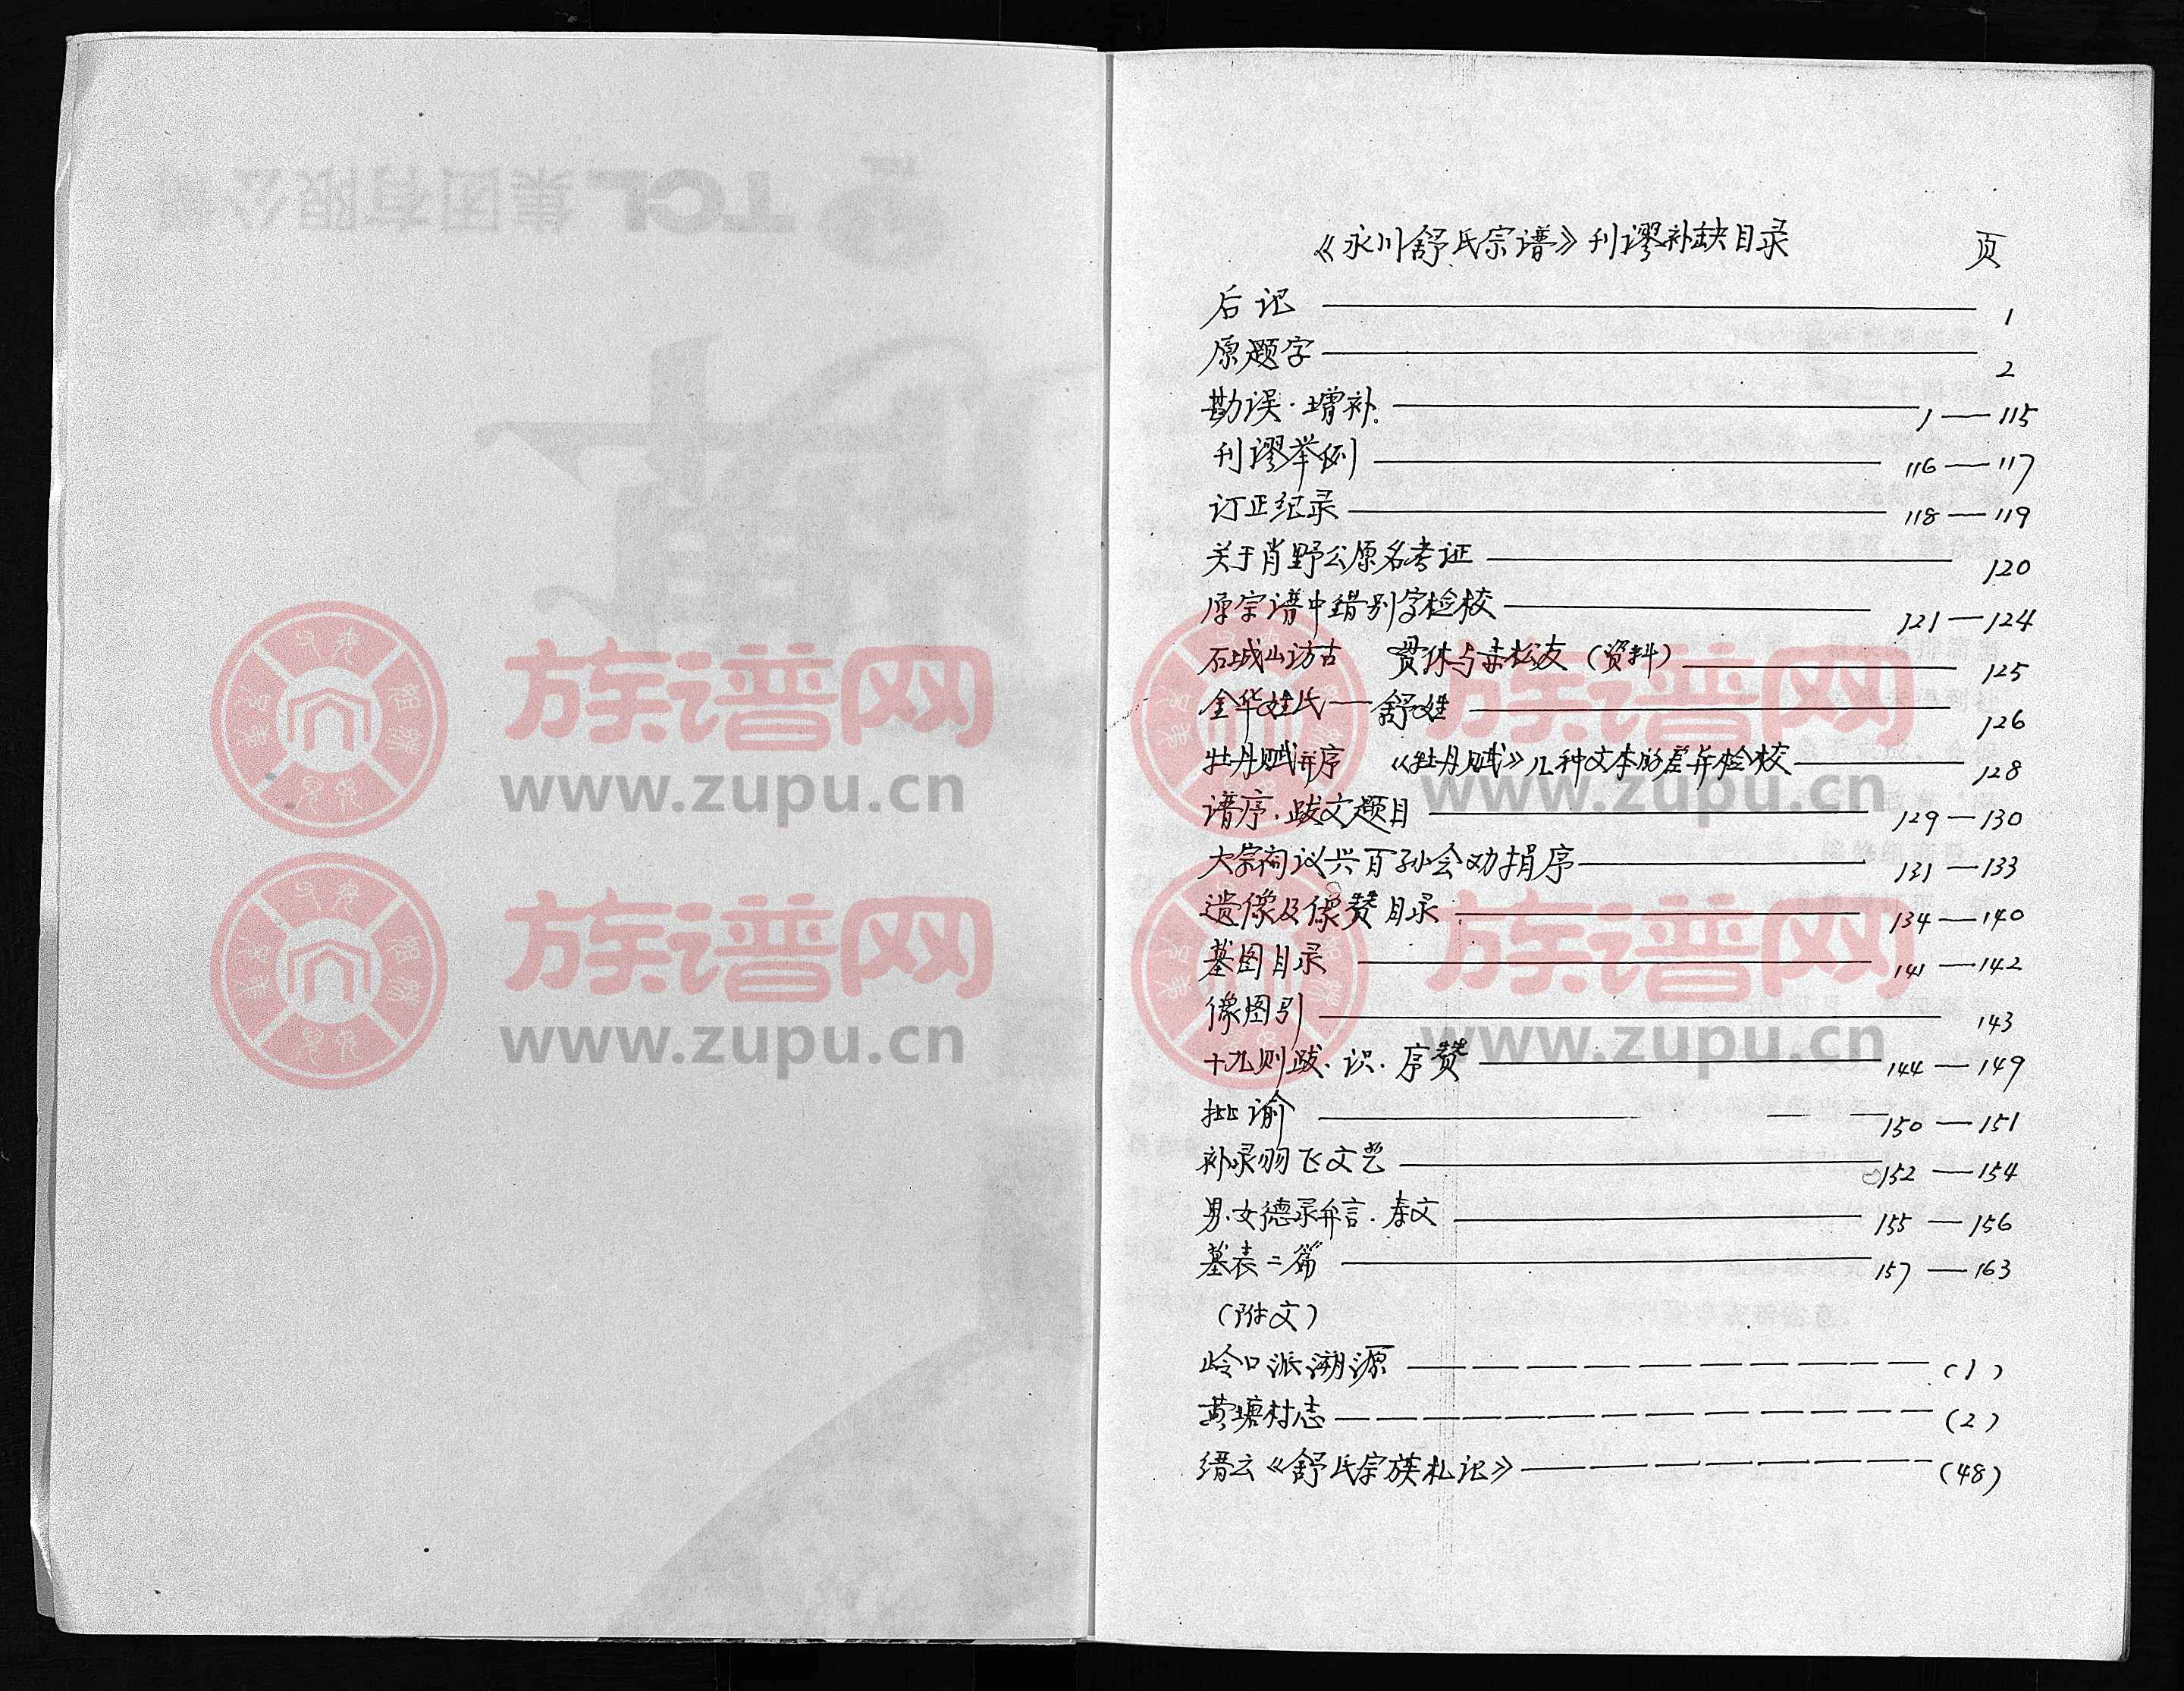 《永川舒氏宗谱》刊谬补缺目录 页
后记 1
原题字 2
勘误·增补 1—115
刊谬举例 116—117
订正纪录 118—119
关于肖野公原名考证 120
原宗谱中错别字检校 121—124
石城山访古 贯休与赤松友（资料） 125
金华姓氏——舒姓 126
牡丹赋并序 《牡丹赋》几种文本的差异检校 128
谱序·跋文题目 129—130
大宗祠议兴百孙会劝捐序 131—133
遗像及像赞目录 134—140
墓图目录 141—142
像图引 143
十九则跋·识·序赞 144—149
批谕 150—151
补录羽飞文艺 152—154
男·女德录弁言·奏文 155—156
墓表二篇 157—163
（附文）
岭口派溯源 (1)
黄塘村志 (2)
缙云《舒氏宗族札记》 (48)
TCL集团有限公司
族谱网
www.zupu.cn
族谱网
www.zupu.cn
族谱网
www.zupu.cn
族谱网
www.zupu.cn